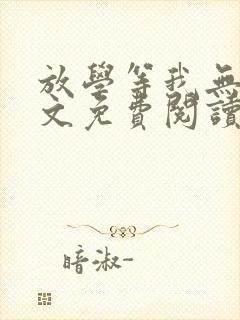 放學等我無
文免費閱讀
暗淑-